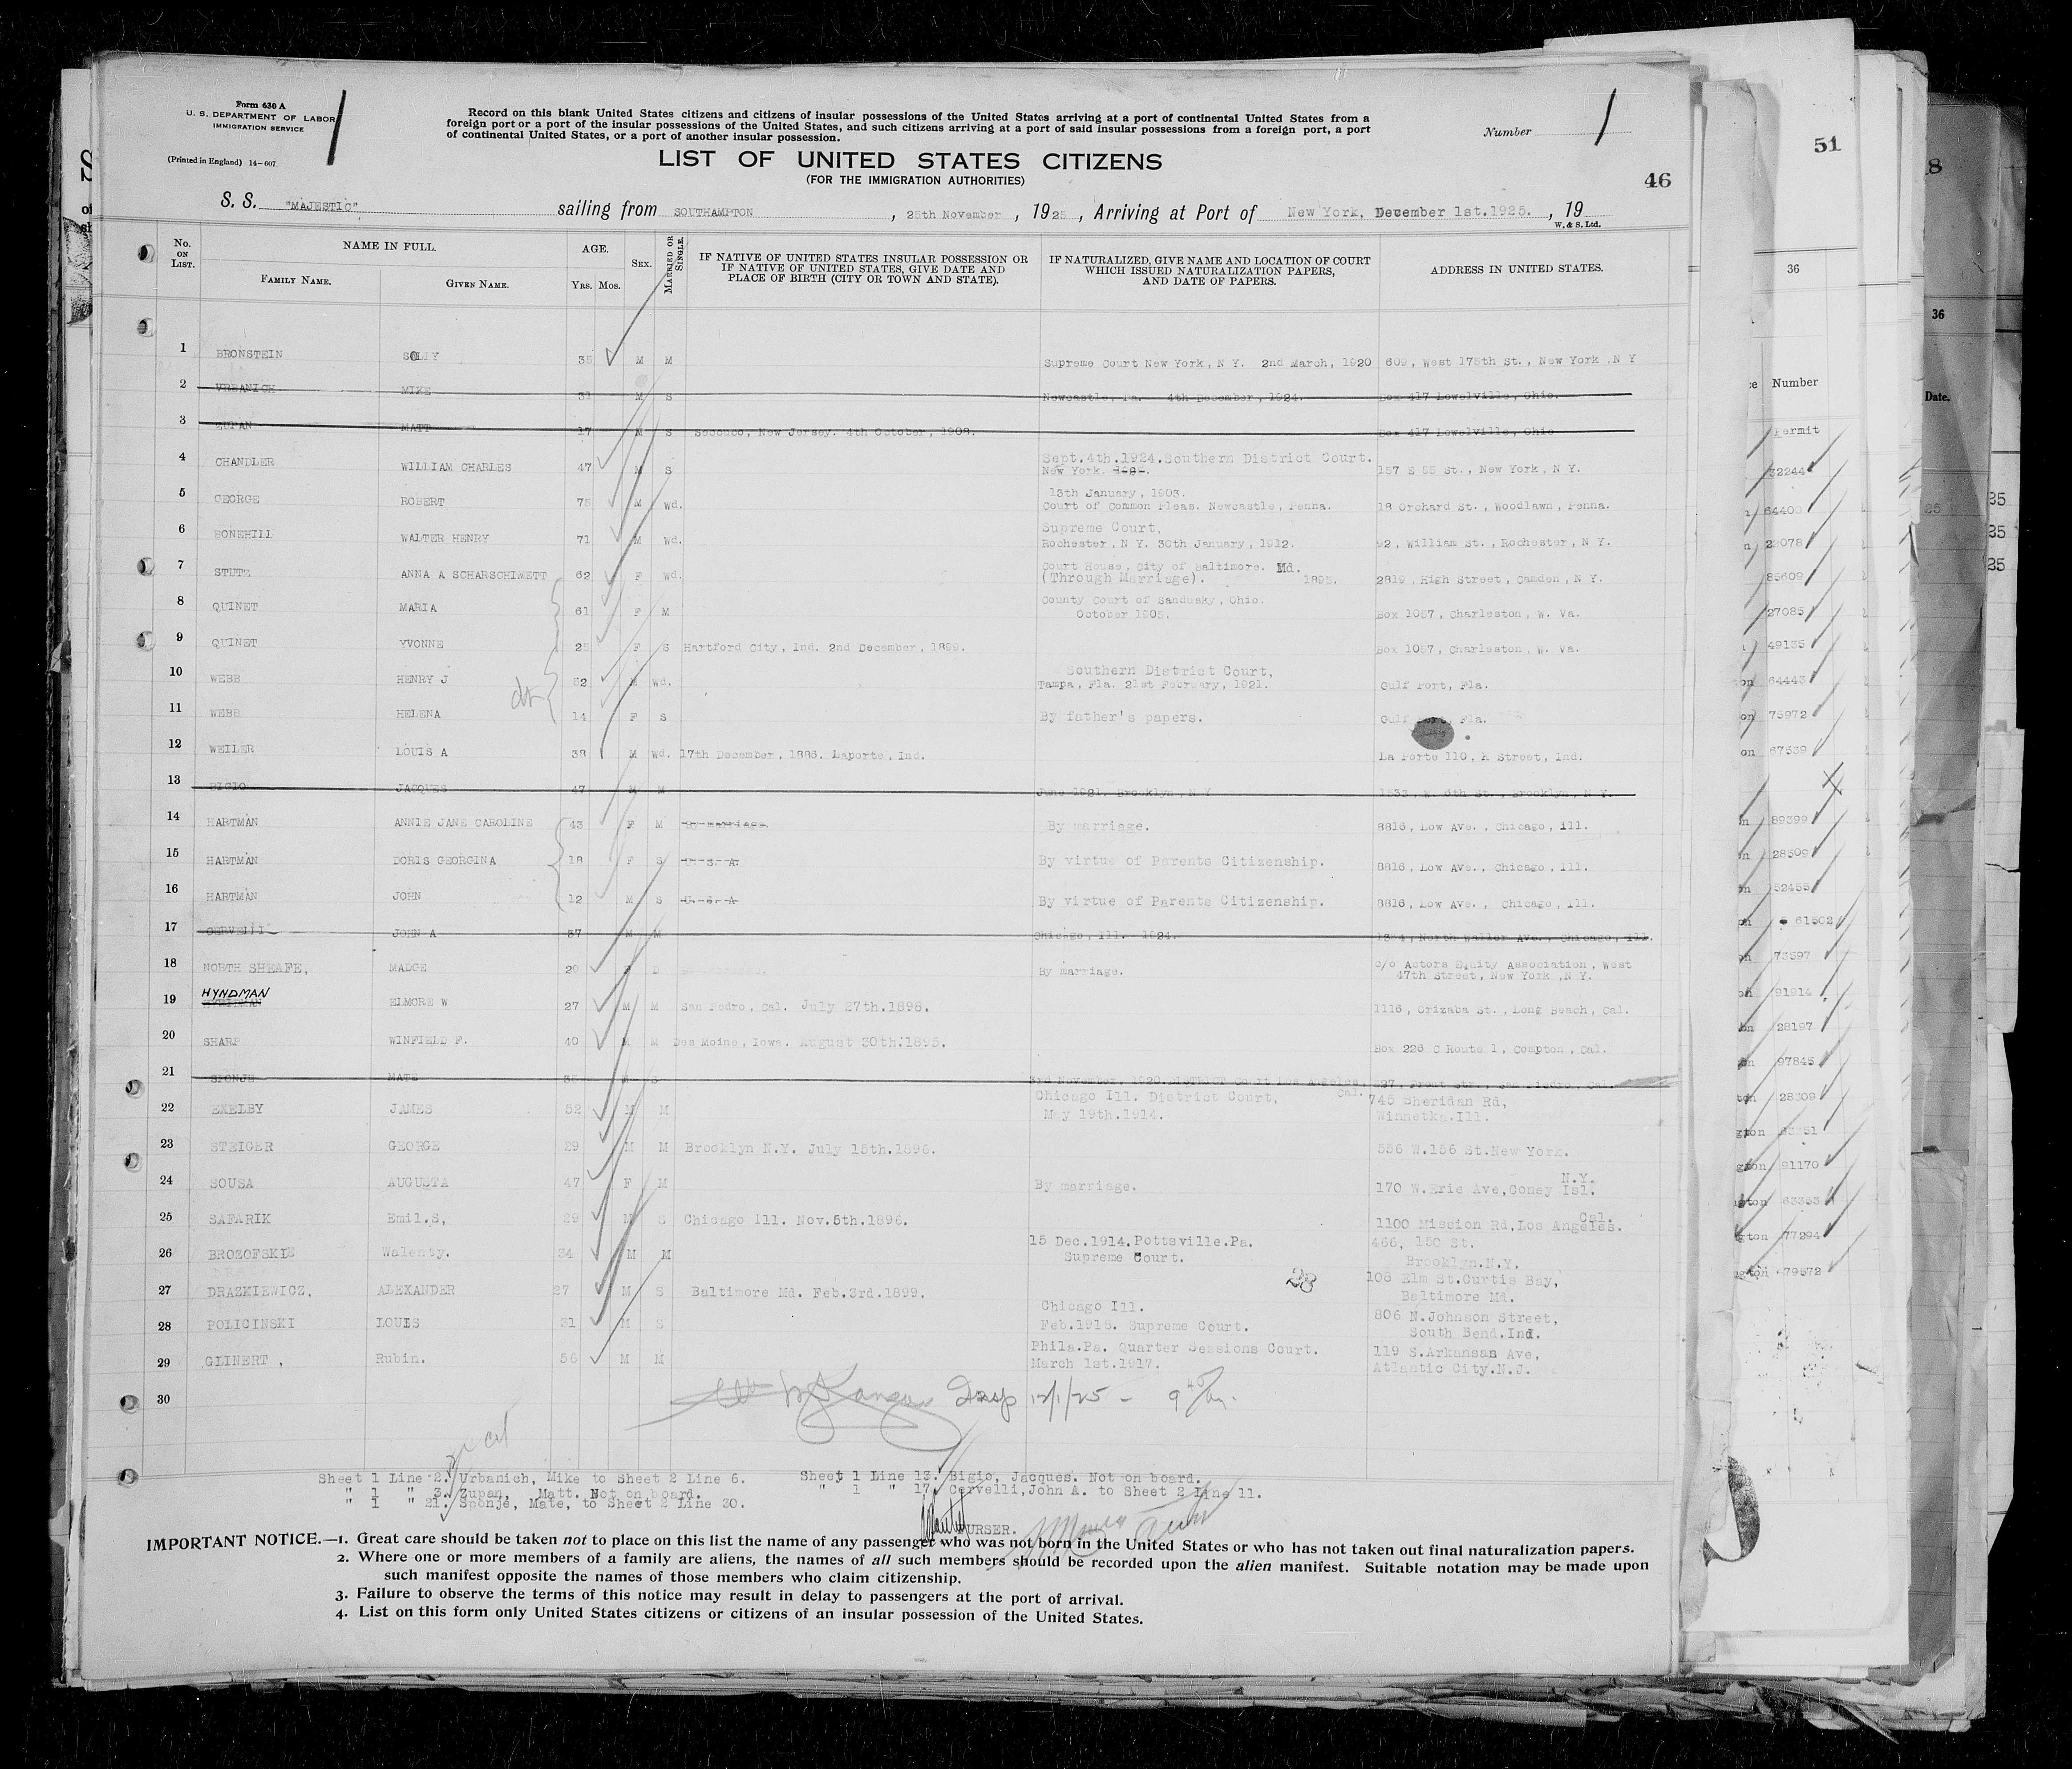 Form 630 A
U. S. DEPARTMENT OF LABOR
IMMIGRATION SERVICE
(Printed in England) 14-607
Record on this blank United States citizens and citizens of insular possessions of the United States arriving at a port of continental United States from a
foreign port or a port of the insular possessions of the United States, and such citizens arriving at a port of said insular possessions from a foreign port, a port
of continental United States, or a port of another insular possession.
Number 1
LIST OF UNITED STATES CITIZENS
(FOR THE IMMIGRATION AUTHORITIES)
46
S. S. "MAJESTIC" sailing from SOUTHAMPTON, 25th November, 1925, Arriving at Port of New York, December 1st.1925., 19
W. & S. Ltd.
No. ON LIST.
NAME IN FULL.
FAMILY NAME. GIVEN NAME.
AGE. YRS. MOS.
SEX.
MARRIED OR SINGLE.
IF NATIVE OF UNITED STATES INSULAR POSSESSION OR
IF NATIVE OF UNITED STATES, GIVE DATE AND
PLACE OF BIRTH (CITY OR TOWN AND STATE).
IF NATURALIZED, GIVE NAME AND LOCATION OF COURT
WHICH ISSUED NATURALIZATION PAPERS,
AND DATE OF PAPERS.
ADDRESS IN UNITED STATES.
1 BRONSTEIN SOLLY 35 M M Supreme Court New York, N Y. 2nd March, 1920 609, West 175th St., New York, N Y
2 URBANICH MIKE M S Newcastle, Pa. 4th December, 1924. Box 417 Lowelville, Ohio.
3 ZUPAN MATT 17 M S Seccuco, New Jersey. 4th October, 1908. Box 417 Lowelville, Ohio
4 CHANDLER WILLIAM CHARLES 47 M S Sept.4th.1924.Southern District Court.
New York. 157 E 55 St., New York, N Y.
5 GEORGE ROBERT 75 M Wd. 13th January, 1903.
Court of Common Pleas. Newcastle, Penna. 18 Orchard St., Woodlawn, Penna.
6 BONEHILL WALTER HENRY 71 M Wd. Supreme Court,
Rochester, N Y. 30th January, 1912. 92, William St., Rochester, N Y.
7 STUTZ ANNA A SCHARSCHIMETT 62 F Wd. Court House, City of Baltimore. Md.
(Through Marriage). 1895. 2819, High Street, Camden, N Y.
8 QUINET MARIA 61 F M County Court of Sandusky, Ohio.
October 1905. Box 1057, Charleston, W. Va.
9 QUINET YVONNE 25 F S Hartford City, Ind. 2nd December, 1899. Box 1057, Charleston, W. Va.
10 WEBB HENRY J 52 M Wd. Southern District Court,
Tampa, Fla. 21st February, 1921. Gulf Port, Fla.
11 WEBB HELENA 14 F S By father's papers. Gulf Fla.
12 WEILER LOUIS A 38 M Wd. 17th December, 1886. Laporte, Ind. La Porte 110, K Street, Ind.
13 BIGIO JACQUES 47 M M June 1921. Brooklyn, N Y 1533, W. 6th St., Brooklyn, N Y.
14 HARTMAN ANNIE JANE CAROLINE 43 F M By marriage By marriage. 8816, Low Ave., Chicago, Ill.
15 HARTMAN DORIS GEORGINA 18 F S U. S. A. By virtue of Parents Citizenship. 8816, Low Ave., Chicago, Ill.
16 HARTMAN JOHN 12 M S U. S. A By virtue of Parents Citizenship. 8816, Low Ave., Chicago, Ill.
17 CERVELLI JOHN A 37 M M Chicago, Ill. 1924. North Waller Ave., Chicago, Ill.
18 NORTH SHEAFE, MADGE 29 F D By marriage. c/o Actors Equity Association, West
47th Street, New York, N Y.
19 HYNDMAN ELMORE W 27 M M San Pedro, Cal. July 27th.1898. 1116, Orizaba St., Long Beach, Cal.
20 SHARP WINFIELD F. 40 M M Des Moine, Iowa. August 30th.1895. Box 226 C Route 1, Compton, Cal.
21 SPONJE MATE M S 3rd November, 1920. DISTRICT Court Los Angeles, Cal. Front Str., San Piedro, Cal.
22 EXELBY JAMES 52 M M Chicago Ill. District Court,
May 19th.1914. 745 Sheridan Rd,
Winnetka.Ill.
23 STEIGER GEORGE 29 M M Brooklyn N.Y. July 15th.1896. 556 W.156 St.New York.
24 SOUSA AUGUSTA 47 F M By marriage. 170 W.Erie Ave,Coney Isl. N.Y.
25 SAFARIK Emil.S, 29 M S Chicago Ill. Nov.5th.1896. 1100 Mission Rd,Los Angeles. Cal.
26 BROZOFSKI Walenty. 34 M M 15 Dec.1914.Pottsville.Pa.
Supreme Court. 466, 150 St.
Brooklyn.N.Y.
27 DRAZKIEWICZ, ALEXANDER 27 M S Baltimore Md. Feb.3rd.1899. 28 108 Elm St.Curtis Bay,
Baltimore Md.
28 POLICINSKI LOUIS 31 M S Chicago Ill.
Feb.1918. Supreme Court. 806 N.Johnson Street,
South Bend.Ind.
29 GLINERT, Rubin. 56 M M Phila.Pa. Quarter Sessions Court.
March 1st.1917. 119 S.Arkansas Ave,
Atlantic City.N.J.
30
Insp 12/1/25 -
Sheet 1 Line 2. Urbanich, Mike to Sheet 2 Line 6. Sheet 1 Line 13. Bigio, Jacques. Not on board.
" 1 " 3. Zupan, Matt. Not on board. " 1 " 17. Cervelli,John A. to Sheet 2 Line 11.
" 1 " 21. Sponje, Mate, to Sheet 2 Line 30.
PURSER.
IMPORTANT NOTICE.—1. Great care should be taken not to place on this list the name of any passenger who was not born in the United States or who has not taken out final naturalization papers.
2. Where one or more members of a family are aliens, the names of all such members should be recorded upon the alien manifest. Suitable notation may be made upon
such manifest opposite the names of those members who claim citizenship.
3. Failure to observe the terms of this notice may result in delay to passengers at the port of arrival.
4. List on this form only United States citizens or citizens of an insular possession of the United States.
51
36
Number
Permit
32244
64400
85609
27085
49135
64443
75972
67539
89399
28509
52455
61502
73597
91914
28197
97845
28309
91170
63353
77294
79572
8
36
Date.
25
35
35
35